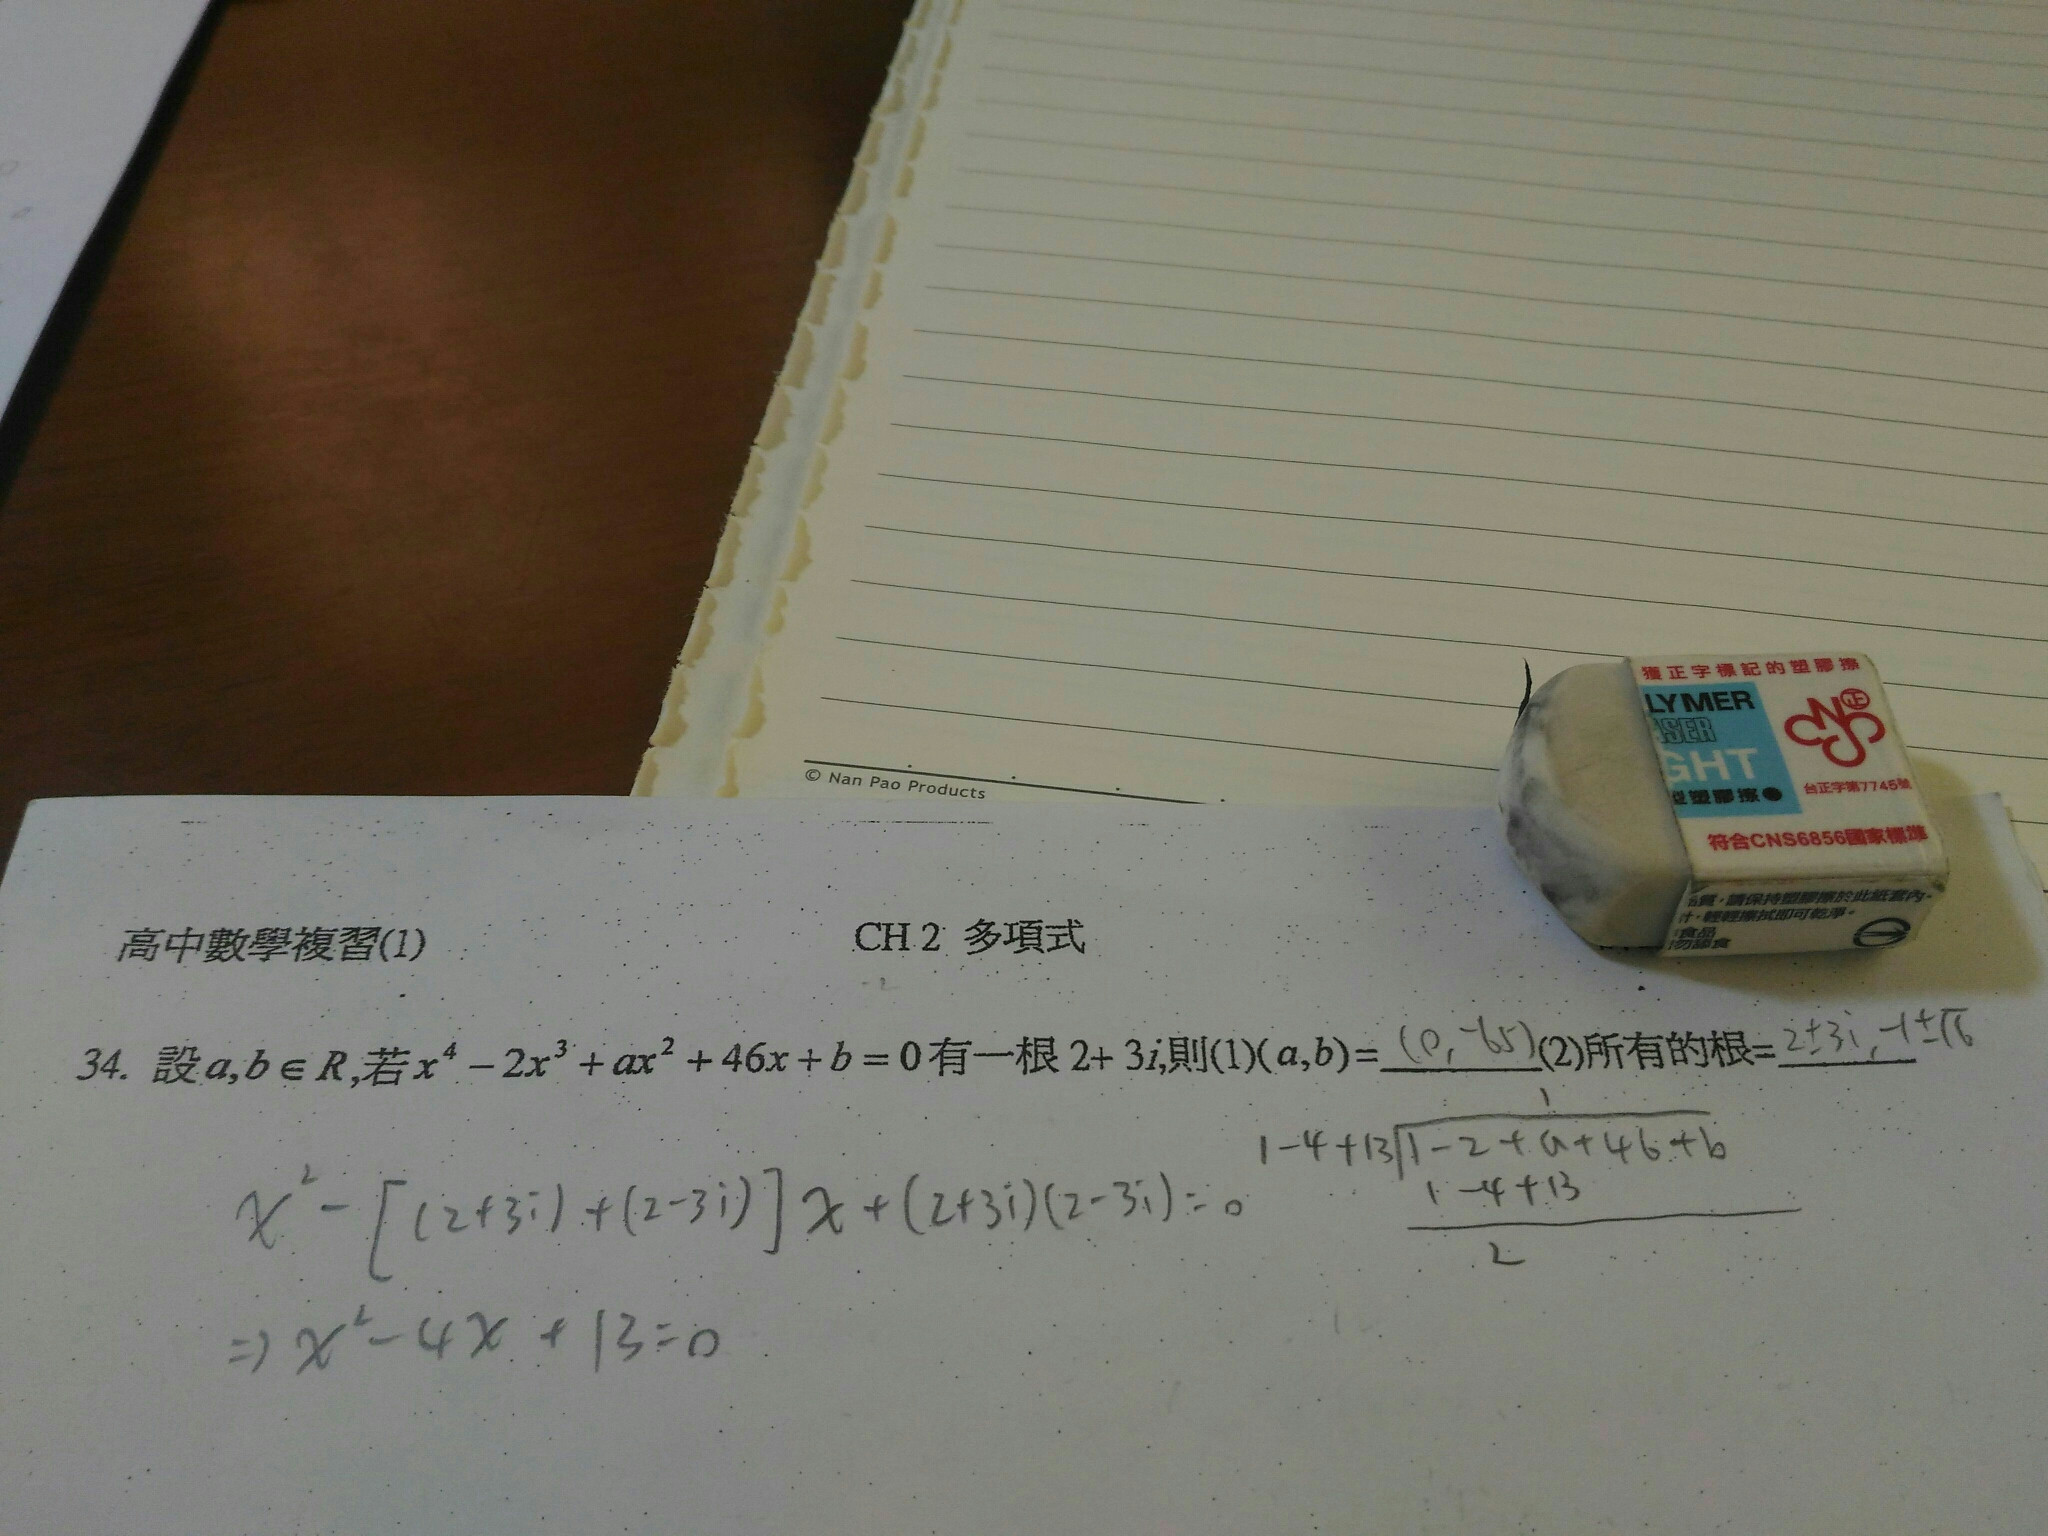 © Nan Pao Products
獲正字標記的塑膠擦
LYMER
ASER
GHT
型塑膠擦
CNS
正
台正字第7745號
符合CNS6856國家標準
質,請保持塑膠擦於此紙套內。
汁,輕輕擦拭即可乾淨。
食品
勿舔食
高中數學複習(1)
CH 2 多項式
34. 設a,b∈R,若x⁴−2x³+ax²+46x+b=0有一根2+3i,則(1)(a,b)=(0,-65)(2)所有的根=2±3i,-1±√6
x²-[(2+3i)+(2-3i)]x+(2+3i)(2-3i)=0
⇒x²-4x+13=0
1
1-4+13)1-2+a+46+b
1-4+13
2